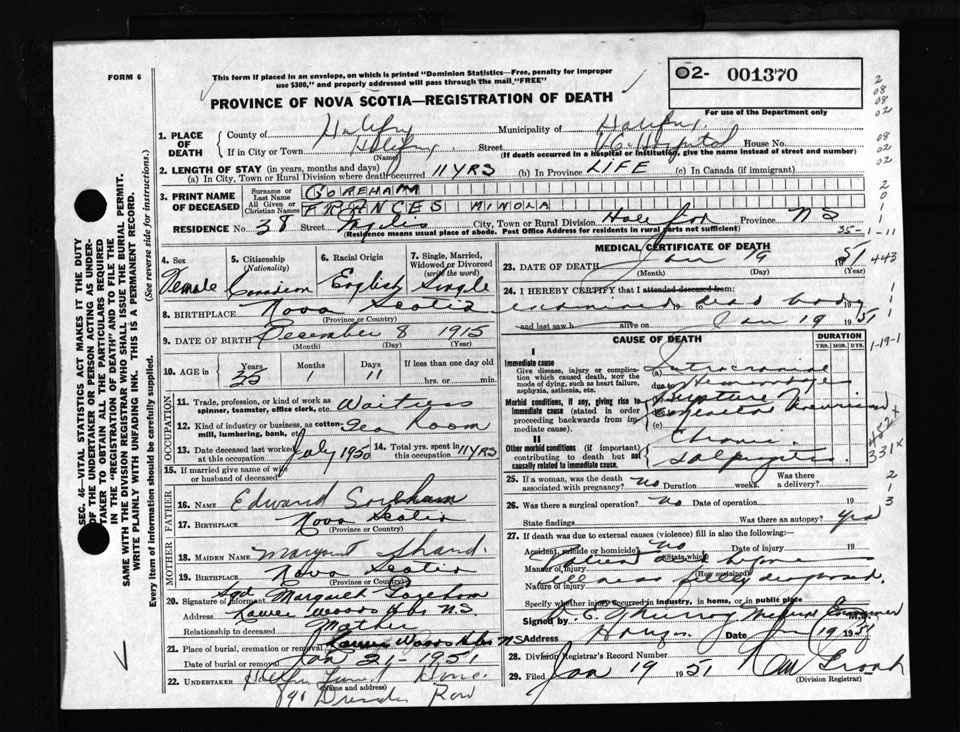 FORM 6
This form if placed in an envelope, on which is printed "Dominion Statistics—Free, penalty for improper
use $300," and properly addressed will pass through the mail "FREE"
PROVINCE OF NOVA SCOTIA—REGISTRATION OF DEATH
02- 001370
For use of the Department only
2
08
08
02
08
02
02
1. PLACE OF DEATH
County of Halifax Municipality of Halifax
If in City or Town Halifax Street Hospital House No.
(Name) (If death occurred in a hospital or institution, give the name instead of street and number)
2. LENGTH OF STAY (in years, months and days)
(a) In City, Town or Rural Division where death occurred 11 YRS (b) In Province LIFE (c) In Canada (if immigrant)
3. PRINT NAME OF DECEASED
Surname or Last Name BOREHAM
All Given or Christian Names FRANCES MINOLA
RESIDENCE No. 38 Street City, Town or Rural Division Halifax Province NS
(Residence means usual place of abode. Post Office Address for residents in rural parts not sufficient)
35-1-11
4. Sex Female
5. Citizenship (Nationality) Canadian
6. Racial Origin English
7. Single, Married, Widowed or Divorced (write the word) Single
8. BIRTHPLACE Nova Scotia
(Province or Country)
9. DATE OF BIRTH December 8 1915
(Month) (Day) (Year)
10. AGE in Years 35 Months Days 11 If less than one day old hrs. or min.
OCCUPATION
11. Trade, profession, or kind of work as spinner, teamster, office clerk, etc. Waitress
12. Kind of industry or business, as cotton-mill, lumbering, bank, etc. Tea Room
13. Date deceased last worked at this occupation July 1950
14. Total yrs. spent in this occupation 11 YRS
15. If married give name of wife or husband of deceased
FATHER
16. NAME Edward Boreham
17. BIRTHPLACE Nova Scotia
(Province or Country)
MOTHER
18. MAIDEN NAME Margaret Shand
19. BIRTHPLACE Nova Scotia
(Province or Country)
20. Signature of informant Sgd Margaret Boreham
Address Woods Hbr N.S.
Relationship to deceased Mother
21. Place of burial, cremation or removal Woods Hbr NS
Date of burial or removal Jan 21-1951
22. UNDERTAKER
(Name and address)
Row
MEDICAL CERTIFICATE OF DEATH
23. DATE OF DEATH Jan 19 1951
(Month) (Day) (Year)
443
24. I HEREBY CERTIFY that I attended deceased from:
examined dead body
and last saw h alive on Jan 19 1951
CAUSE OF DEATH
DURATION
YRS. MOS. DYS.
1-19-1
I
Immediate cause
Give disease, injury or complication which caused death, NOT the mode of dying, such as heart failure, asphyxia, asthenia, etc.
(a) Intracranial
due to Hemorrhage
Morbid conditions, if any, giving rise to immediate cause (stated in order proceeding backwards from immediate cause).
Rupture
Congenital Aneurism
(c)
II
Other morbid conditions (if important) contributing to death but not causally related to immediate cause.
Chronic
Salpingitis
331 x
25. If a woman, was the death associated with pregnancy? No Duration weeks Was there a delivery?
26. Was there a surgical operation? No Date of operation 19
State findings Was there an autopsy? Yes
27. If death was due to external causes (violence) fill in also the following:
Accident, suicide or homicide? No Date of injury 19
(State which)
Manner of injury
(How sustained)
Nature of injury
Specify whether injury occurred in industry, in home, or in public place
Signed by Murray Medical Examiner M.D.
Address Date Jan 19 1951
28. Division Registrar's Record Number
29. Filed Jan 19 1951
(Division Registrar)
SEC. 46—VITAL STATISTICS ACT MAKES IT THE DUTY
OF THE UNDERTAKER OR PERSON ACTING AS UNDER-
TAKER TO OBTAIN ALL THE PARTICULARS REQUIRED
IN THE "REGISTRATION OF DEATH" AND TO FILE THE
SAME WITH THE DIVISION REGISTRAR WHO SHALL ISSUE THE BURIAL PERMIT.
WRITE PLAINLY WITH UNFADING INK. THIS IS A PERMANENT RECORD.
Every item of information should be carefully supplied. (See reverse side for instructions.)